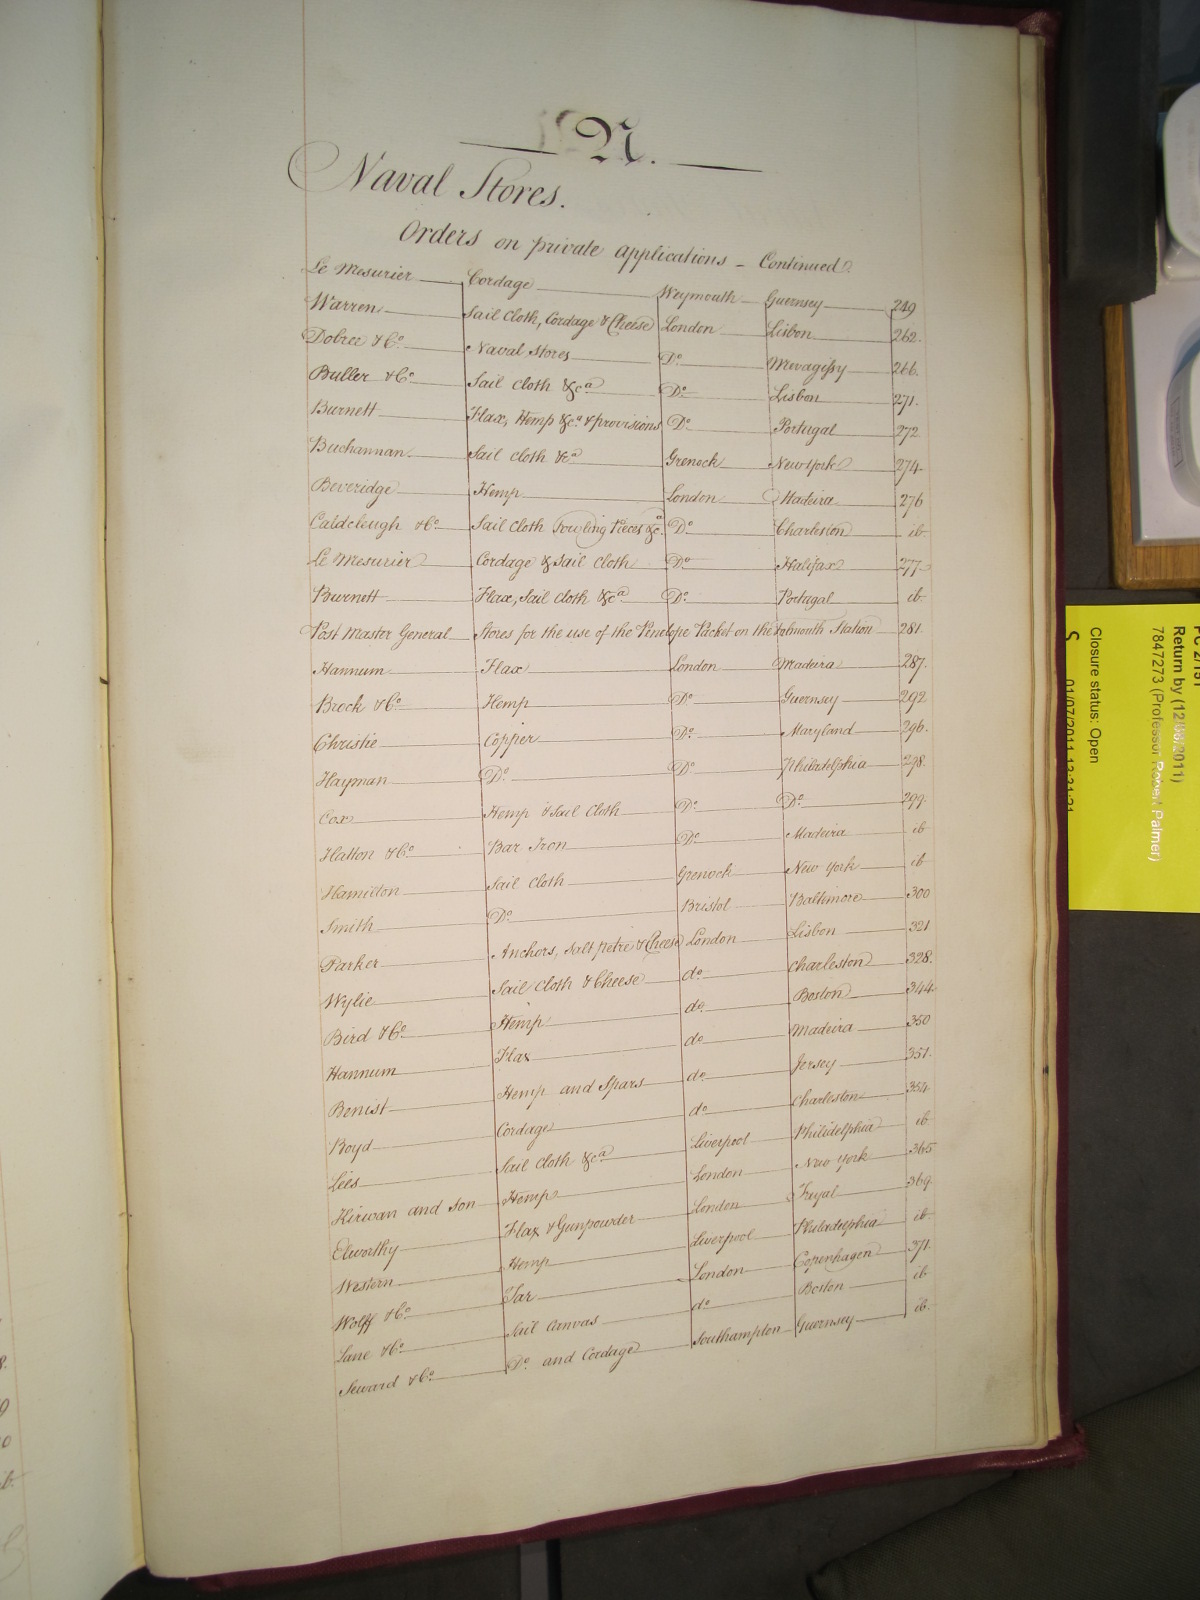 N.
Naval Stores.
Orders on private applications - Continued
Le Mesurier Cordage Weymouth Guernsey 249
Warren Sail Cloth, Cordage & Cheese London Lisbon 262.
Dobree & Co. Naval Stores Do. Mevagissy 266.
Buller & Co. Sail Cloth &ca. Do. Lisbon 271.
Burnett Flax, Hemp &ca. & provisions Do. Portugal 272
Buchannan Sail Cloth &ca. Grenock New York 274
Beveridge Hemp London Madeira 276
Caldcleugh & Co. Sail Cloth Fowling Pieces &ca. Do. Charleston ib
Le Mesurier Cordage & Sail Cloth Do. Halifax 277
Burnett Flax, Sail Cloth &ca. Do. Portugal ib
Post Master General Stores for the use of the Penelope Packet on the Falmouth Station 281
Hannum Flax London Madeira 287.
Brock & Co. Hemp Do. Guernsey 292
Christie Copper Do. Maryland 296.
Hayman Do. Do. Philadelphia 298.
Cox Hemp & Sail Cloth Do. Do. 299.
Hatton & Co. Bar Iron Do. Madeira ib
Hamilton Sail Cloth Grenock New York ib
Smith Do. Bristol Baltimore 300
Parker Anchors, Salt petre & Cheese London Lisbon 321
Wylie Sail Cloth & Cheese do. Charleston 328.
Bird & Co. Hemp do. Boston 344
Hannum Flax do. Madeira 350
Benist Hemp and Spars do. Jersey 351.
Boyd Cordage do. Charleston 354
Lees Sail Cloth &ca. Liverpool Philidelphia ib
Kirwan and Son Hemp London New York 365
Elworthy Flax & Gunpowder London Fayal 369
Western Hemp Liverpool Philadelphia ib.
Wolff & Co. Tar London Copenhagen 371
Lane & Co. Sail Canvas do. Boston ib
Seward & Co. Do. and Cordage Southampton Guernsey ib.
Return by (12/08/2011)
7847273 (Professor Robert Palmer)
Closure status: Open
01/07/2011 13:21:21
S